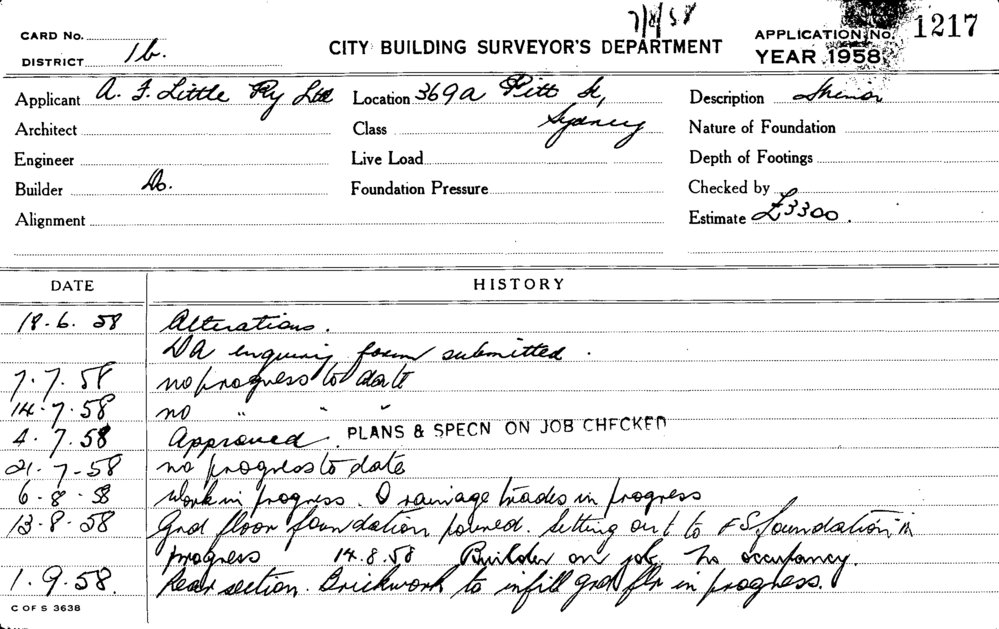 7/8/58
CARD No.
DISTRICT 1b.
CITY BUILDING SURVEYOR'S DEPARTMENT
APPLICATION No. 1217
YEAR 1958
Applicant A. F. Little Pty Ltd
Location 369a Pitt St,
Sydney
Description
Architect
Class
Nature of Foundation
Engineer
Live Load
Depth of Footings
Builder Do.
Foundation Pressure
Checked by
Alignment
Estimate £3300.
DATE HISTORY
18.6.58 Alterations.
DA enquiry form submitted.
7.7.58 no progress to date
14.7.58 no " " "
4.7.58 Approved. PLANS & SPECN ON JOB CHECKED
21-7-58 no progress to date
6-8-58 Work in progress. Drainage trades in progress
13-8-58 Grnd floor foundation poured. Setting out to FS foundation in
progress 14.8.58 Builder on job no occupancy.
1.9.58. Rear section. Brickwork to infill grd flr in progress.
C OF S 3638